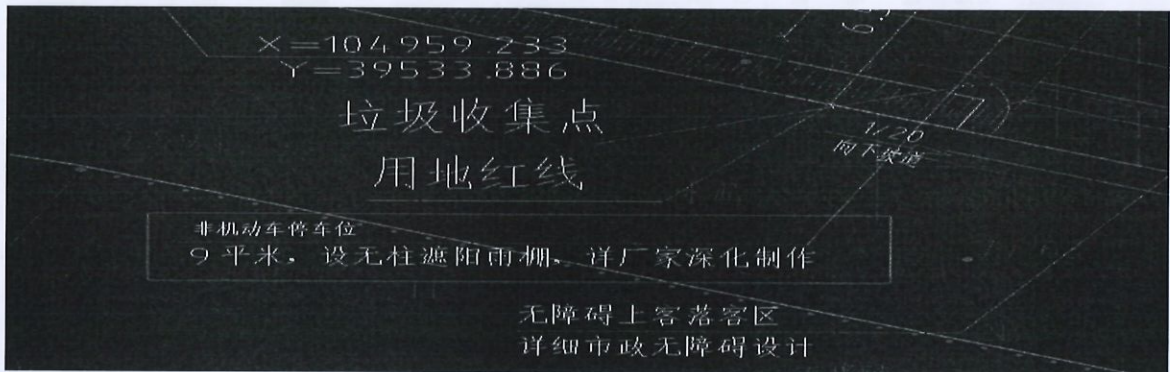 X=104959.233
Y=39533.886
垃圾收集点
用地红线
1/20
向下坡道
非机动车停车位
9平米，设无柱遮阳雨棚，详厂家深化制作
无障碍上客落客区
详细市政无障碍设计